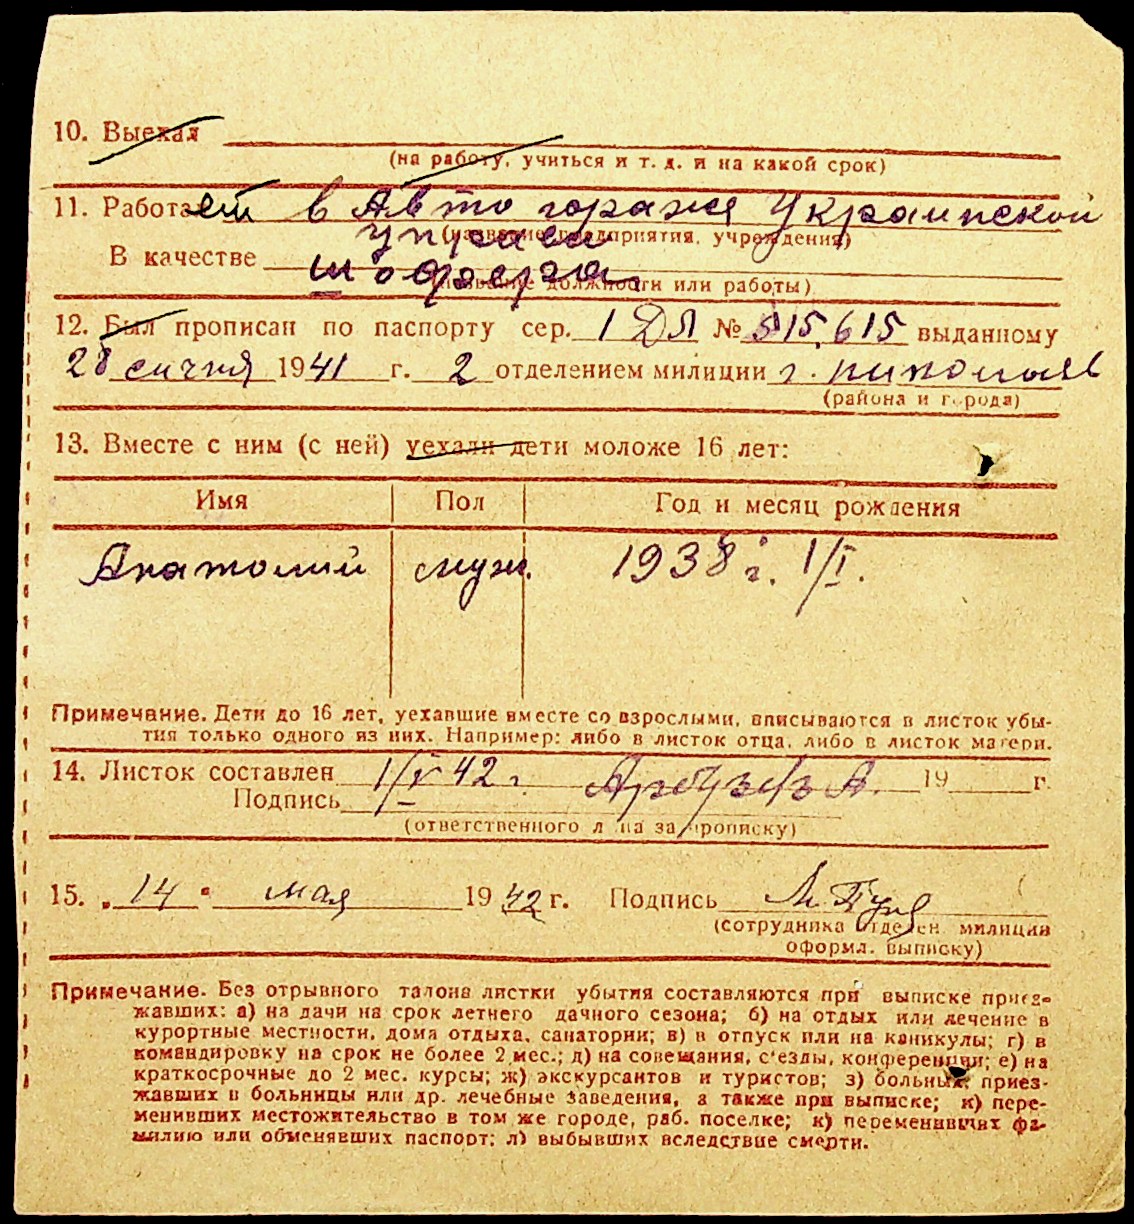 10. Выехал
(на работу, учиться и т. д. и на какой срок)
11. Работает в Авто гораже Украинской
управе
(название предприятия, учреждения)
В качестве шофера
(название должности или работы)
12. Был прописан по паспорту сер. 1 ДЛ № 515,615 выданному
28 сичня 1941 г. 2 отделением милиции г. николаев
(района и города)
13. Вместе с ним (с ней) уехали дети моложе 16 лет:
Имя Пол Год и месяц рождения
Анатолий муж. 1938 г. 1/I.
Примечание. Дети до 16 лет, уехавшие вместе со взрослыми, вписываются в листок убы-
тия только одного из них. Например: либо в листок отца, либо в листок матери.
14. Листок составлен 42 г. А. 19 г.
Подпись
(ответственного лица за прописку)
15. „ 14 " мая 19 42 г. Подпись
(сотрудника отделен. милиции
оформл. выписку)
Примечание. Без отрывного талона листки убытия составляются при выписке приез-
жавших: а) на дачи на срок летнего дачного сезона; б) на отдых или лечение в
курортные местности, дома отдыха, санатории; в) в отпуск или на каникулы; г) в
командировку на срок не более 2 мес.; д) на совещания, с'езды, конференции; е) на
краткосрочные до 2 мес. курсы; ж) экскурсантов и туристов; з) больных, приез-
жавших в больницы или др. лечебные заведения, а также при выписке; и) пере-
менивших местожительство в том же городе, раб. поселке; к) переменивших фа-
милию или обменявших паспорт; л) выбывших вследствие смерти.